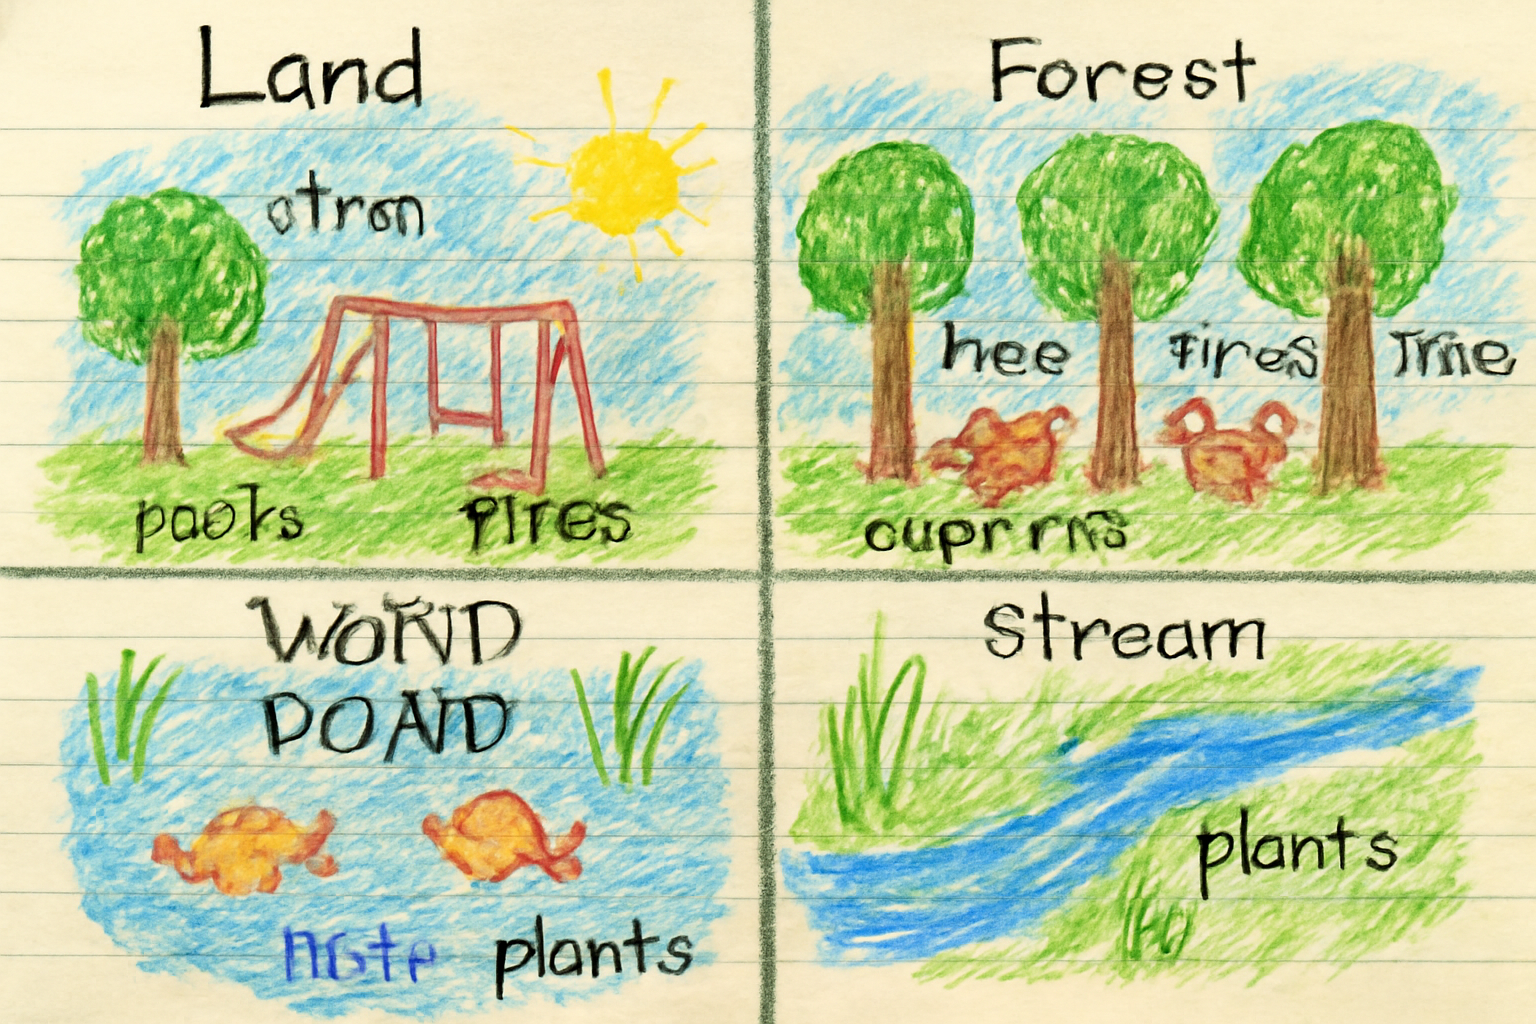 Land
otron
paoks
pires
Forest
hee fires
cuprrns
WORND
POAND
plants
Stream
plants